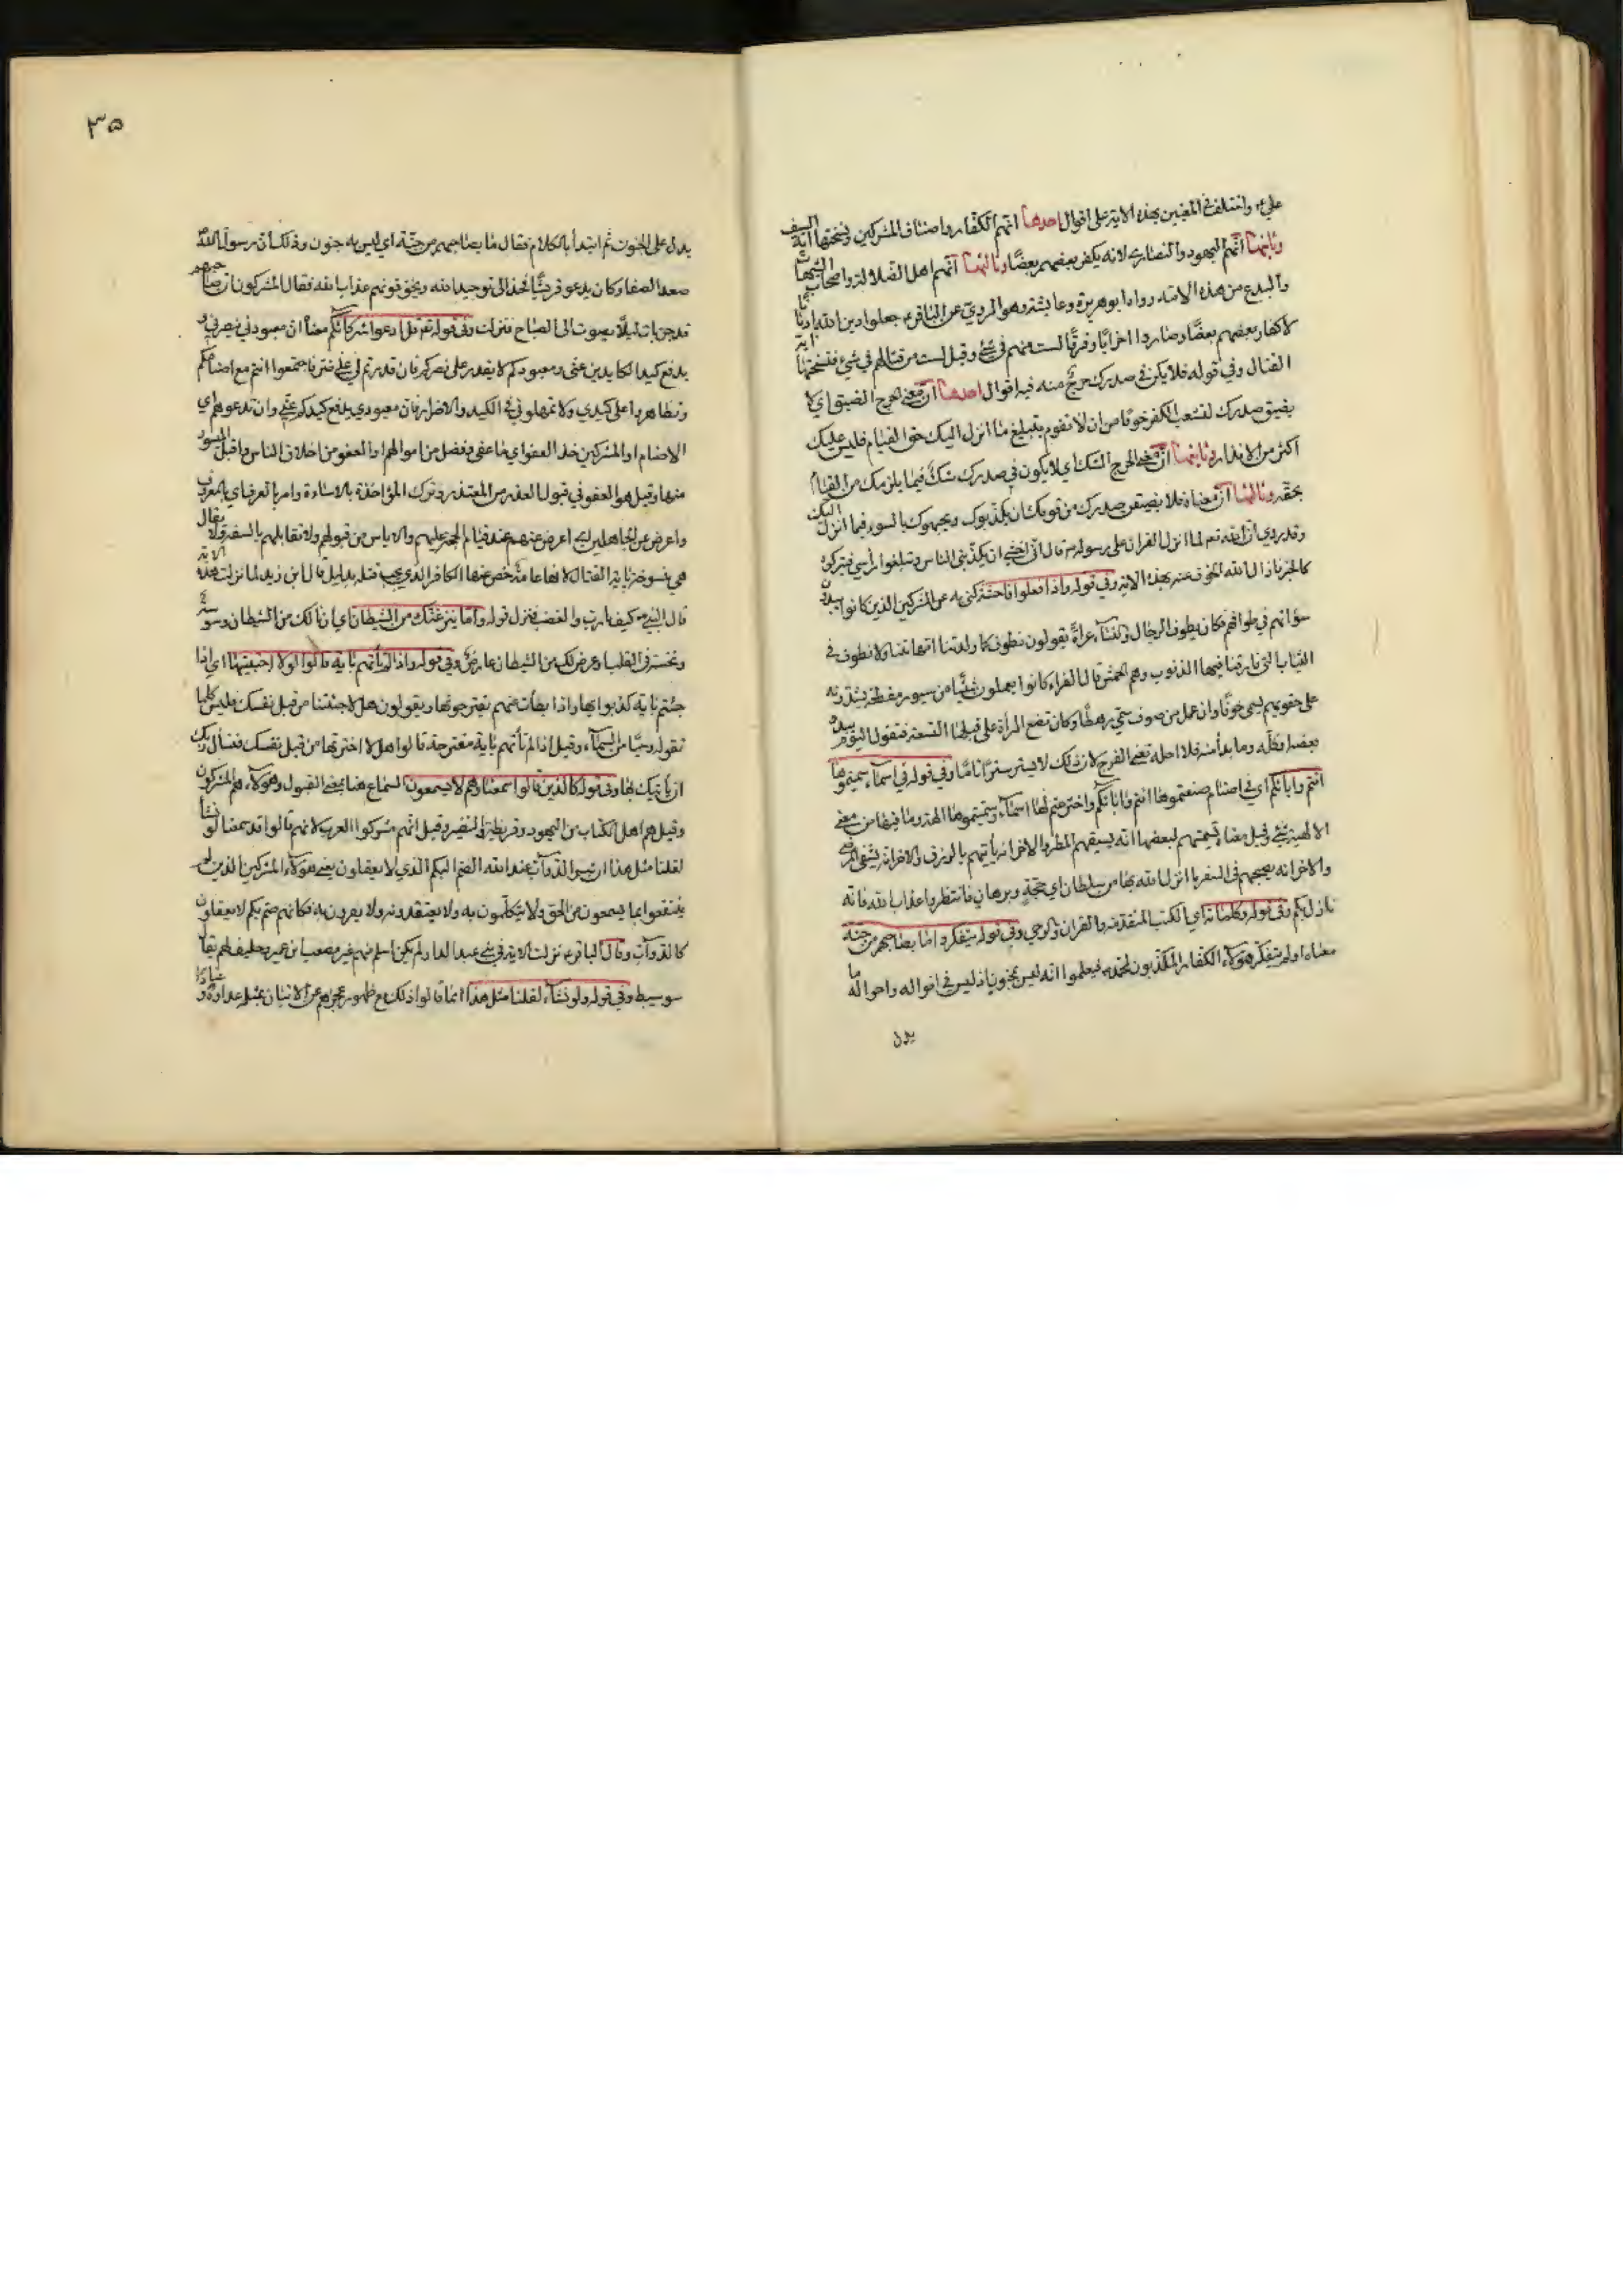 علي ع واختلف في المعنين بهذه الاية على اقوال احدها انهم الكفار واصناف المشركين ونسختها آية السيف
وثانيها انهم اليهود والنصارى لانه يكفر بعضهم بعضا وثالثها انهم اهل الضلالة واصحاب الشبهات
والبدع من هذه الامة رواه ابو هريرة وعايشة وهو المروي عن الباقر ع جعلوا دين الله اديانا
لاكفار بعضهم بعضا وصاروا احزابا وفرقا لست منهم في شئ وقيل لست من قتالهم في شيء فنسختها اية
القتال وفي قوله فلا يكن في صدرك حرج منه فيه اقوال احدها ان معنى الحرج الضيق اي لا
يضيق صدرك لتشعب الكفر خوفا من ان لا تقوم بتبليغ ما انزل اليك حق القيام فليس عليك
اكثر من الانذار وثانيها ان معنى الحرج الشك اي لا يكون في صدرك شك فيما يلزمك من القيام
بحقه وثالثها ان معناه فلا يضيقن صدرك من قومك ان يكذبوك ويجبهوك بالسوء فيما انزل اليك
وقد روي ان الله تعالى لما انزل القران على رسوله ص قال اني اخشى ان يكذبني الناس ويثلغوا رأسي فيتركوه
كالخبزة فازال الله الخوف عنه بهذه الاية وفي قوله واذا فعلوا فاحشة كنى به عن المشركين الذين كانوا يبدون
سوآتهم في طوافهم فكان يطوف الرجال والنساء عراة يقولون نطوف كما ولدتنا امهاتنا ولا نطوف في
الثياب التي قارفنا فيها الذنوب وهم الحمس قال الفراء كانوا يعملون شيئا من سيور مقطعة يشدونه
على حقويهم يسمى حوفا وان عمل من صوف سمي رهطا وكان تضع المرأة على قبلها النسعة فتقول اليوم يبدو
بعضه او كله وما بدا منه فلا احله تعني الفرج لان ذلك لا يستر سترا تاما وفي قوله في اسماء سميتموها
انتم واباؤكم اي في اصنام صنعتموها انتم واباؤكم واخترعتم لها اسماء وسميتموها الهة وما فيها من معنى
الالهية شئ وقيل معناه تسميتهم لبعضها انه يسقيهم المطر والاخر انه يأتيهم بالرزق والاخر انه يشفي المرضى
والاخر انه يصحبهم في السفر ما انزل الله بها من سلطان اي حجة وبرهان فانتظروا عذاب الله فانه
نازل بكم وفي قوله وكلماته اي الكتب المتقدمة والقران والوحي وفي قوله اولم يتفكروا ما بصاحبهم من جنة
معناه اولم يتفكر هؤلاء الكفار المكذبون لمحمد ص فيعلموا انه ليس بمجنون اذ ليس في اقواله واحواله ما
يدل
٣٥
يدل على الجنون ثم ابتدأ بالكلام فقال ما بصاحبهم من جنة اي ليس به جنون وذلك ان رسول الله
صعد الصفا وكان يدعو قريشا فخذا الى توحيد الله ويخوفهم عذاب الله فقال المشركون ان صاحبهم
قد جن بات ليلا يصوت الى الصباح فنزلت وفي قوله تعالى قل ادعوا شركائكم معناه ان معبودي ينصرني و
يدفع كيد الكايدين عني ومعبودكم لا يقدر على نصركم فان قدرتم لي على ضر فاجتمعوا انتم مع اصنامكم
وتظاهروا على كيدي ولا تمهلوني في الكيد والاضرار فان معبودي يدفع كيدكم عني وان تدعوهم اي
الاصنام او المشركين خذ العفو اي ما عفى وفضل من اموالهم او العفو من اخلاق الناس واقبل الميسور
منها وقيل هو العفو في قبول العذر من المعتذر وترك المؤاخذة بالاساءة وامر بالعرف اي بالمعروف
واعرض عن الجاهلين اي اعرض عنهم عند قيام الحجة عليهم والاياس من قبولهم ولا تقابلهم بالسفه ولا يقال
هي منسوخة باية القتال لانها عامة خص عنها الكافر الذي يجب قتله بدليل قال ابن زيد لما نزلت هذه الاية
قال النبي ص كيف يا رب والغضب فنزل قوله واما ينزغنك من الشيطان اي ان نالك من الشيطان وسوسة
ونخسة في القلب او عرض لك من الشيطان عارض وفي قوله واذا لم تأتهم باية قالوا لولا اجتبيتها اي اذا
جئتهم باية كذبوا بها واذا ابطأت عنهم يقترحونها ويقولون هلا جئتنا من قبل نفسك فليس كلما
تقوله وحيا من السماء وقيل اذا لم تأتهم باية مقترحة قالوا هلا اخترتها من قبل نفسك فتسأل ربك
ان يأتيك بها وفي قوله كالذين قالوا سمعنا وهم لا يسمعون السماع هنا بمعنى القبول وهؤلاء هم المنافقون
وقيل هم اهل الكتاب من اليهود وقريظة والنضير وقيل انهم مشركوا العرب لانهم قالوا قد سمعنا لو نشاء
لقلنا مثل هذا ان شر الدوآب عند الله الصم البكم الذي لا يعقلون يعني هؤلاء المشركين الذين لم
ينتفعوا بما يسمعون من الحق ولا يتكلمون به ولا يعتقدونه ولا يقرون به فكانهم صم بكم لا يعقلون
كالدوآب وقال الباقر ع نزلت الاية في بني عبد الدار لم يكن اسلم منهم غير مصعب بن عمير وحليف لهم يقال
سويبط وفي قوله ولو نشاء لقلنا مثل هذا انما قالوا ذلك مع ظهور عجزهم عن الاتيان بمثله عداوة و عنادا